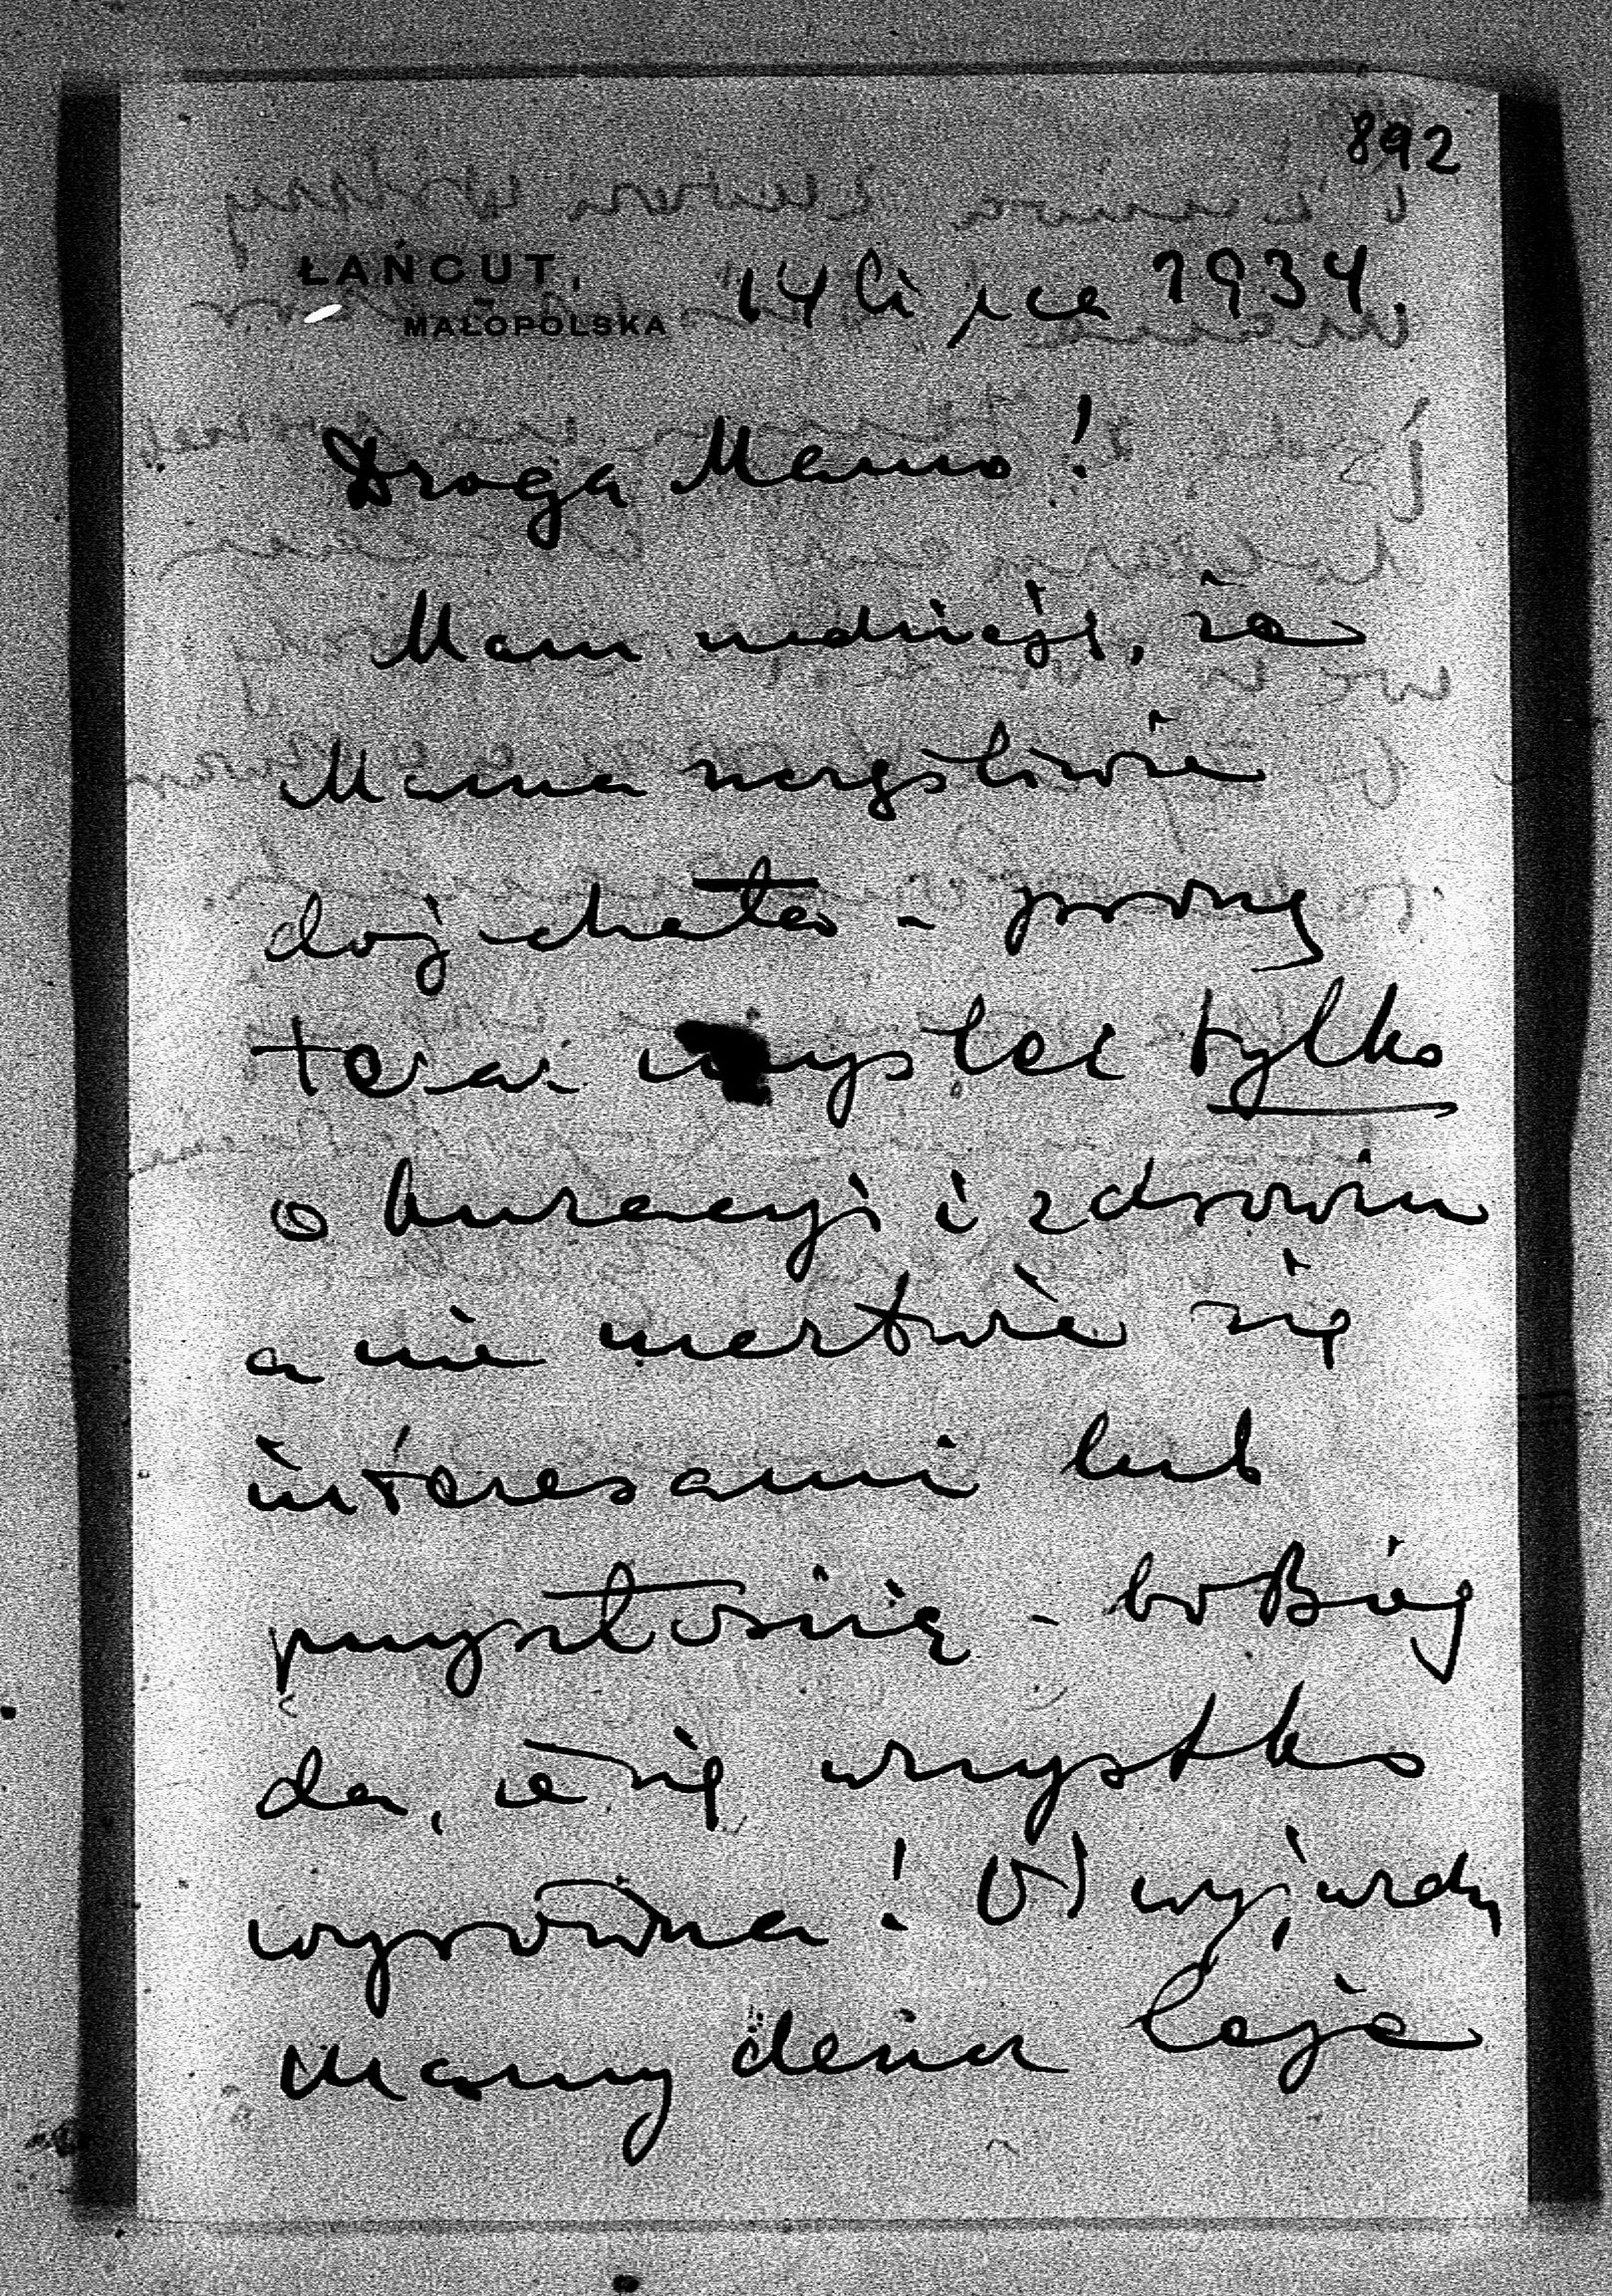 892
ŁAŃCUT, 14 lipca 1934.
MAŁOPOLSKA
Droga Mamo!
Mam nadzieję, że
Mama szczęśliwie
dojechała - proszę
teraz myśleć tylko
o kuracyi i zdrowiu
a nie martwić się
interesami lub
przyszłością - bo Bóg
da, że się wszystko
wyrówna! Od wyjazdu
Mamy deszcz leje